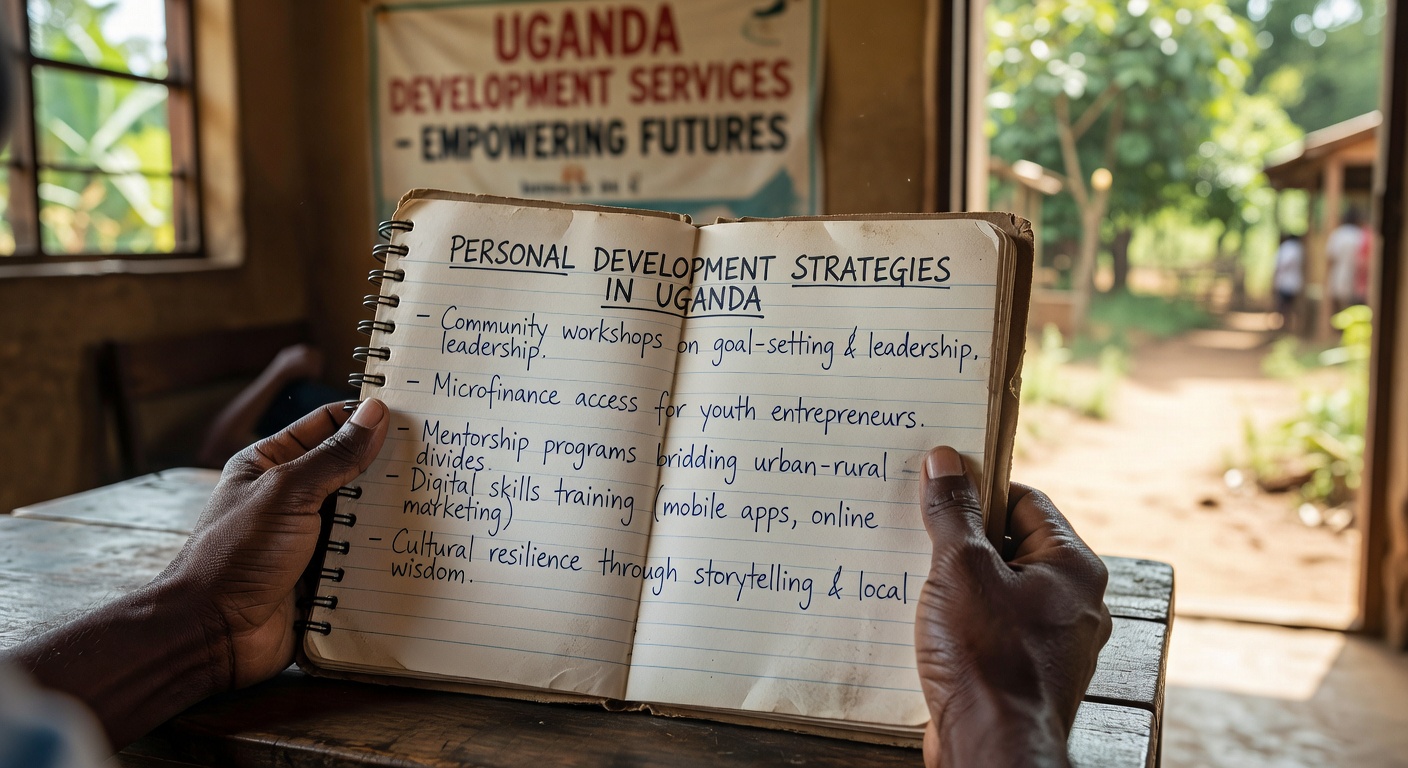 UGANDA
DEVELOPMENT SERVICES
- EMPOWERING FUTURES
PERSONAL DEVELOPMENT STRATEGIES
IN UGANDA
- Community workshops on goal-setting & leadership.
leadership.
- Microfinance access for youth entrepreneurs.
- Mentorship programs bridding urban-rural
divides.
- Digital skills training (mobile apps, online
marketing)
- Cultural resilience through storytelling & local
wisdom.